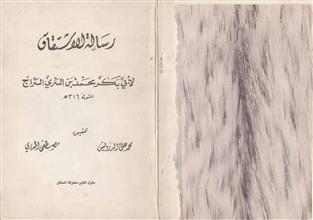 رسالة الاشتقاق
لأبي بكر محمد بن السري السراج
المتوفى ٣١٦ هـ
تحقيق
محمد علي الدرويش
مصطفى الحدري
حقوق الطبع محفوظة للمحقق